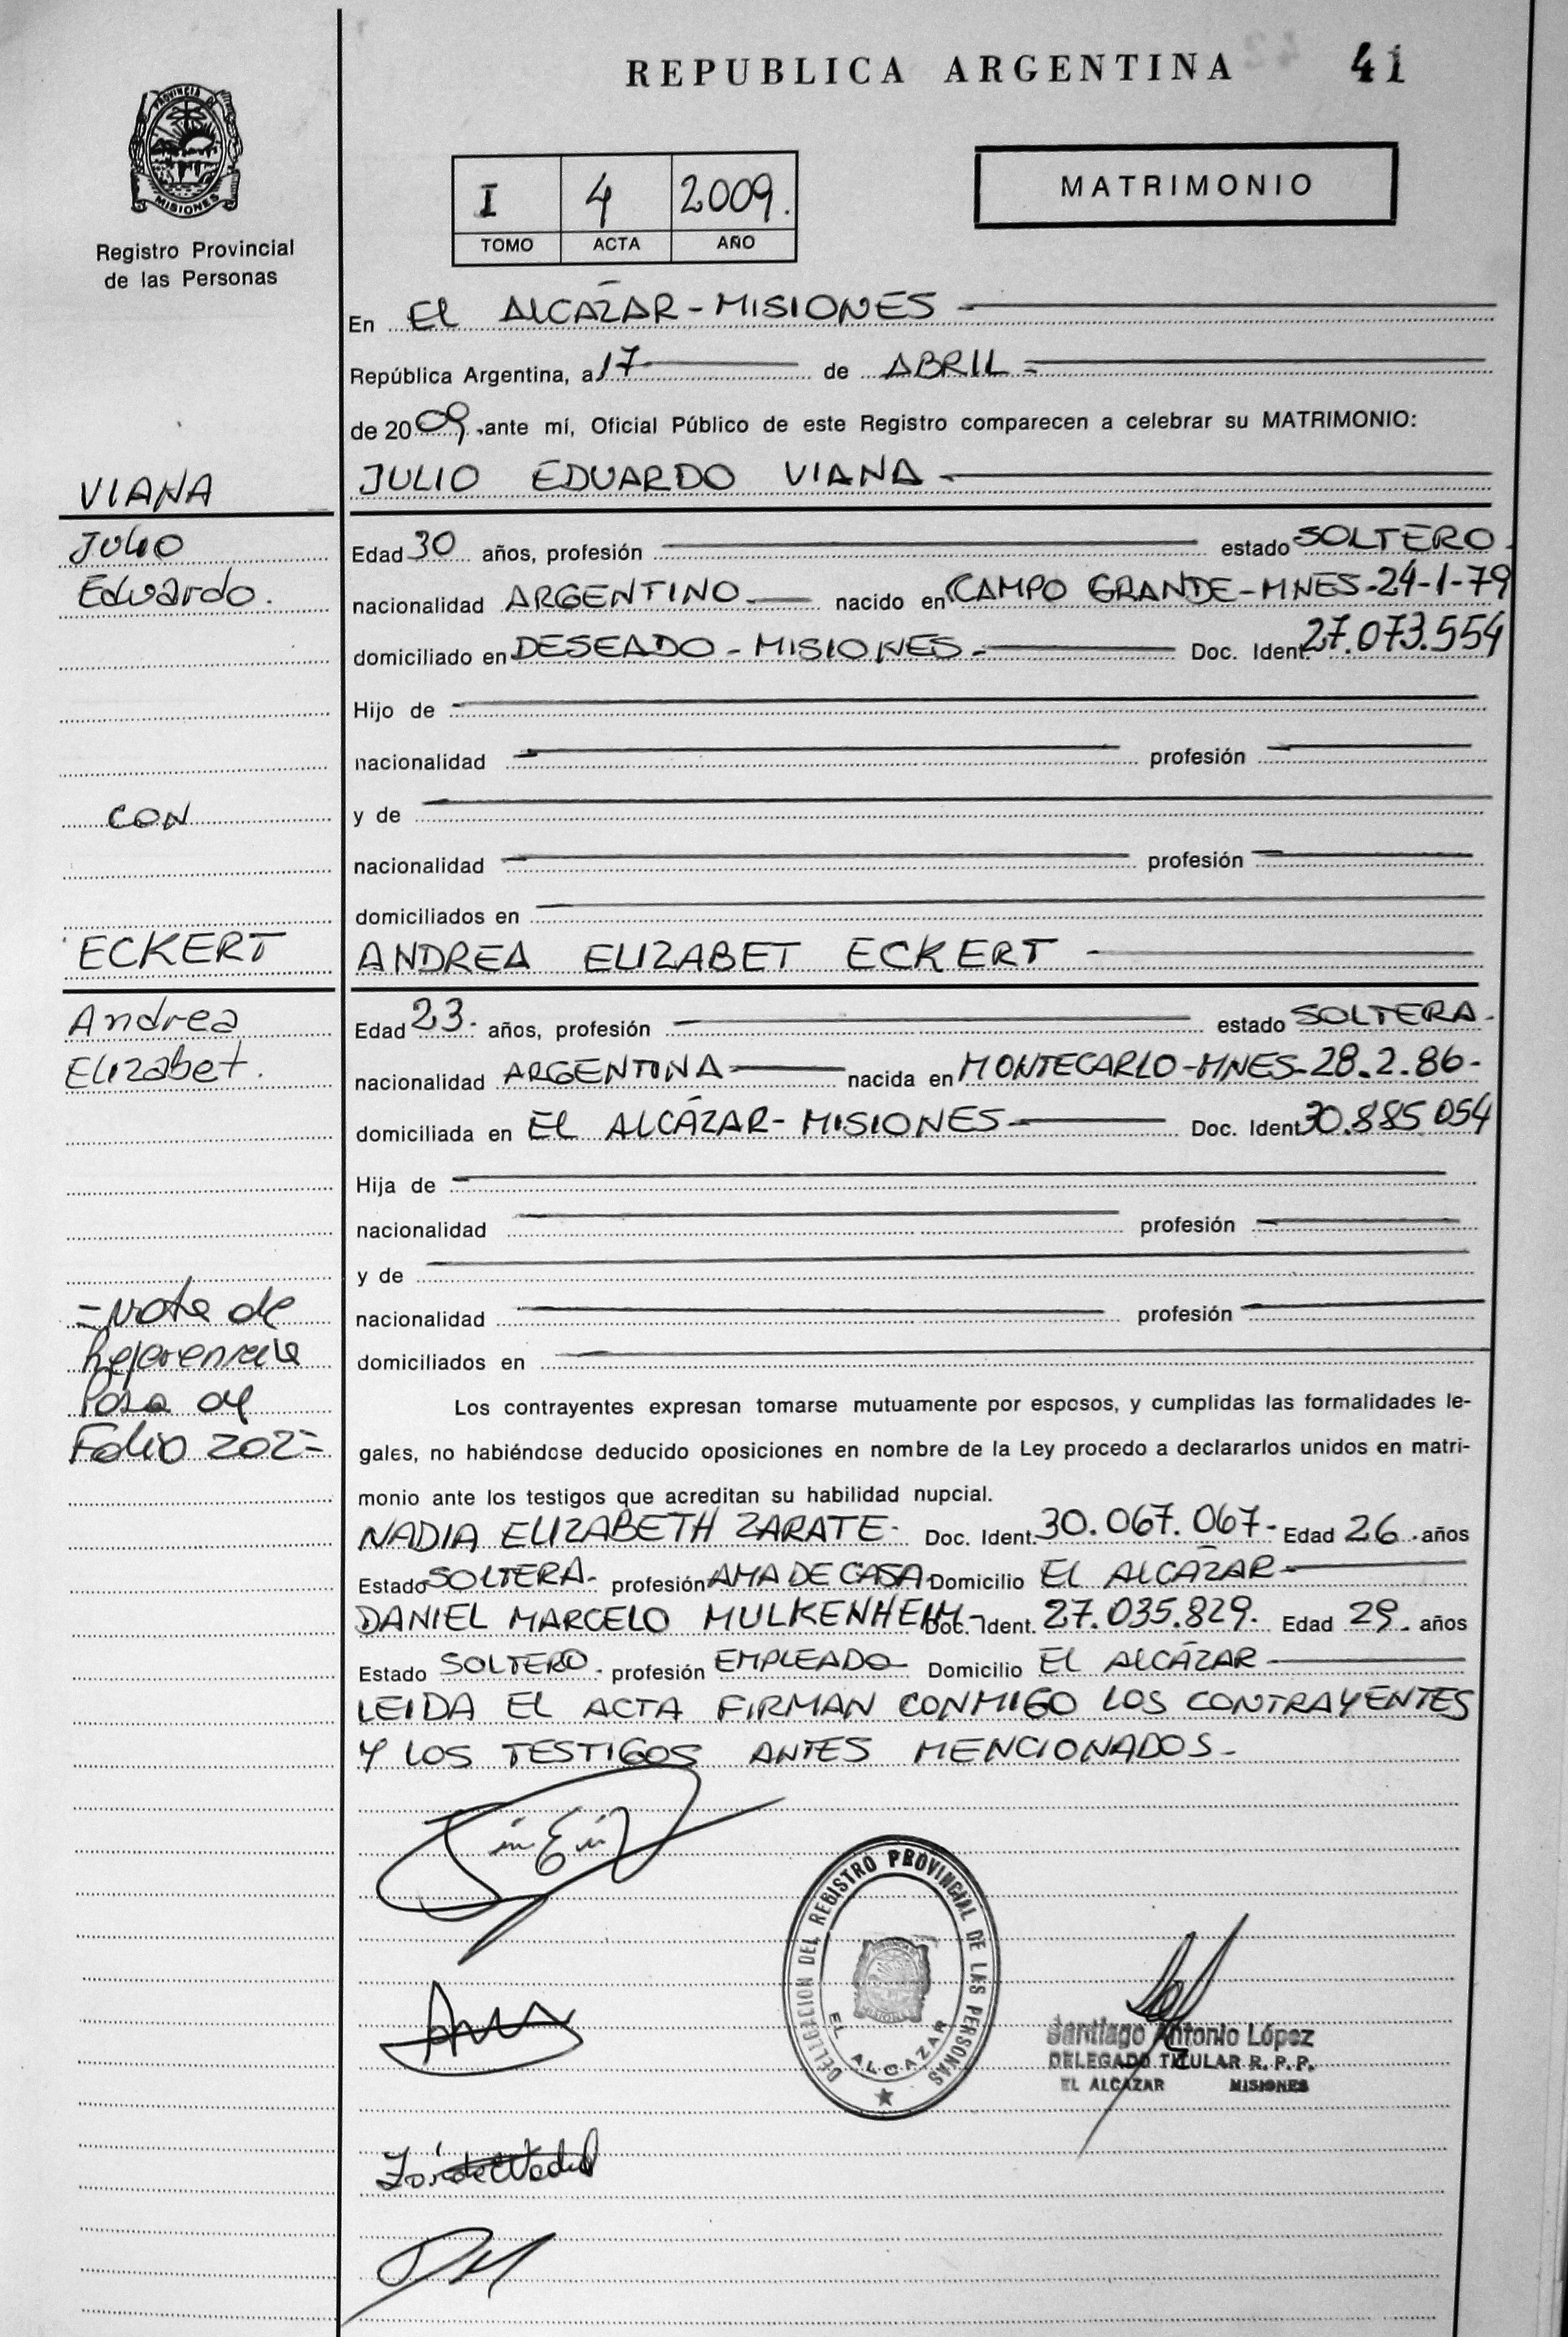 REPUBLICA ARGENTINA 41
PROVINCIA DE
MISIONES
Registro Provincial
de las Personas
I 4 2009.
TOMO ACTA AÑO
MATRIMONIO
En EL ALCÁZAR - MISIONES
República Argentina, a 17 de ABRIL
de 2009 ante mí, Oficial Público de este Registro comparecen a celebrar su MATRIMONIO:
VIANA
JULIO EDUARDO VIANA
Julio
Edad 30 años, profesión estado SOLTERO
Eduardo.
nacionalidad ARGENTINO nacido en CAMPO GRANDE-MNES-24-1-79
domiciliado en DESEADO - MISIONES Doc. Ident. 27.073.554
Hijo de
nacionalidad profesión
CON
y de
nacionalidad profesión
domiciliados en
ECKERT
ANDREA ELIZABET ECKERT
Andrea
Edad 23 años, profesión estado SOLTERA
Elizabet.
nacionalidad ARGENTINA nacida en MONTECARLO-MNES-28.2.86-
domiciliada en EL ALCÁZAR - MISIONES Doc. Ident. 30.885.054
Hija de
nacionalidad profesión
y de
-Nota de
nacionalidad profesión
Referencia
domiciliados en
Pasa al
Folio 202-
Los contrayentes expresan tomarse mutuamente por esposos, y cumplidas las formalidades le-
gales, no habiéndose deducido oposiciones en nombre de la Ley procedo a declararlos unidos en matri-
monio ante los testigos que acreditan su habilidad nupcial.
NADIA ELIZABETH ZARATE- Doc. Ident. 30.067.067- Edad 26 años
Estado SOLTERA- profesión AMA DE CASA Domicilio EL ALCÁZAR
DANIEL MARCELO MULKENHEIM- Doc. Ident. 27.035.829. Edad 29 años
Estado SOLTERO- profesión EMPLEADO Domicilio EL ALCÁZAR
LEIDA EL ACTA FIRMAN CONMIGO LOS CONTRAYENTES
Y LOS TESTIGOS ANTES MENCIONADOS-
DELEGACION DEL REGISTRO PROVINCIAL DE LAS PERSONAS
EL ALCAZAR
Santiago Antonio López
DELEGADO TITULAR R. P. P.
EL ALCAZAR MISIONES